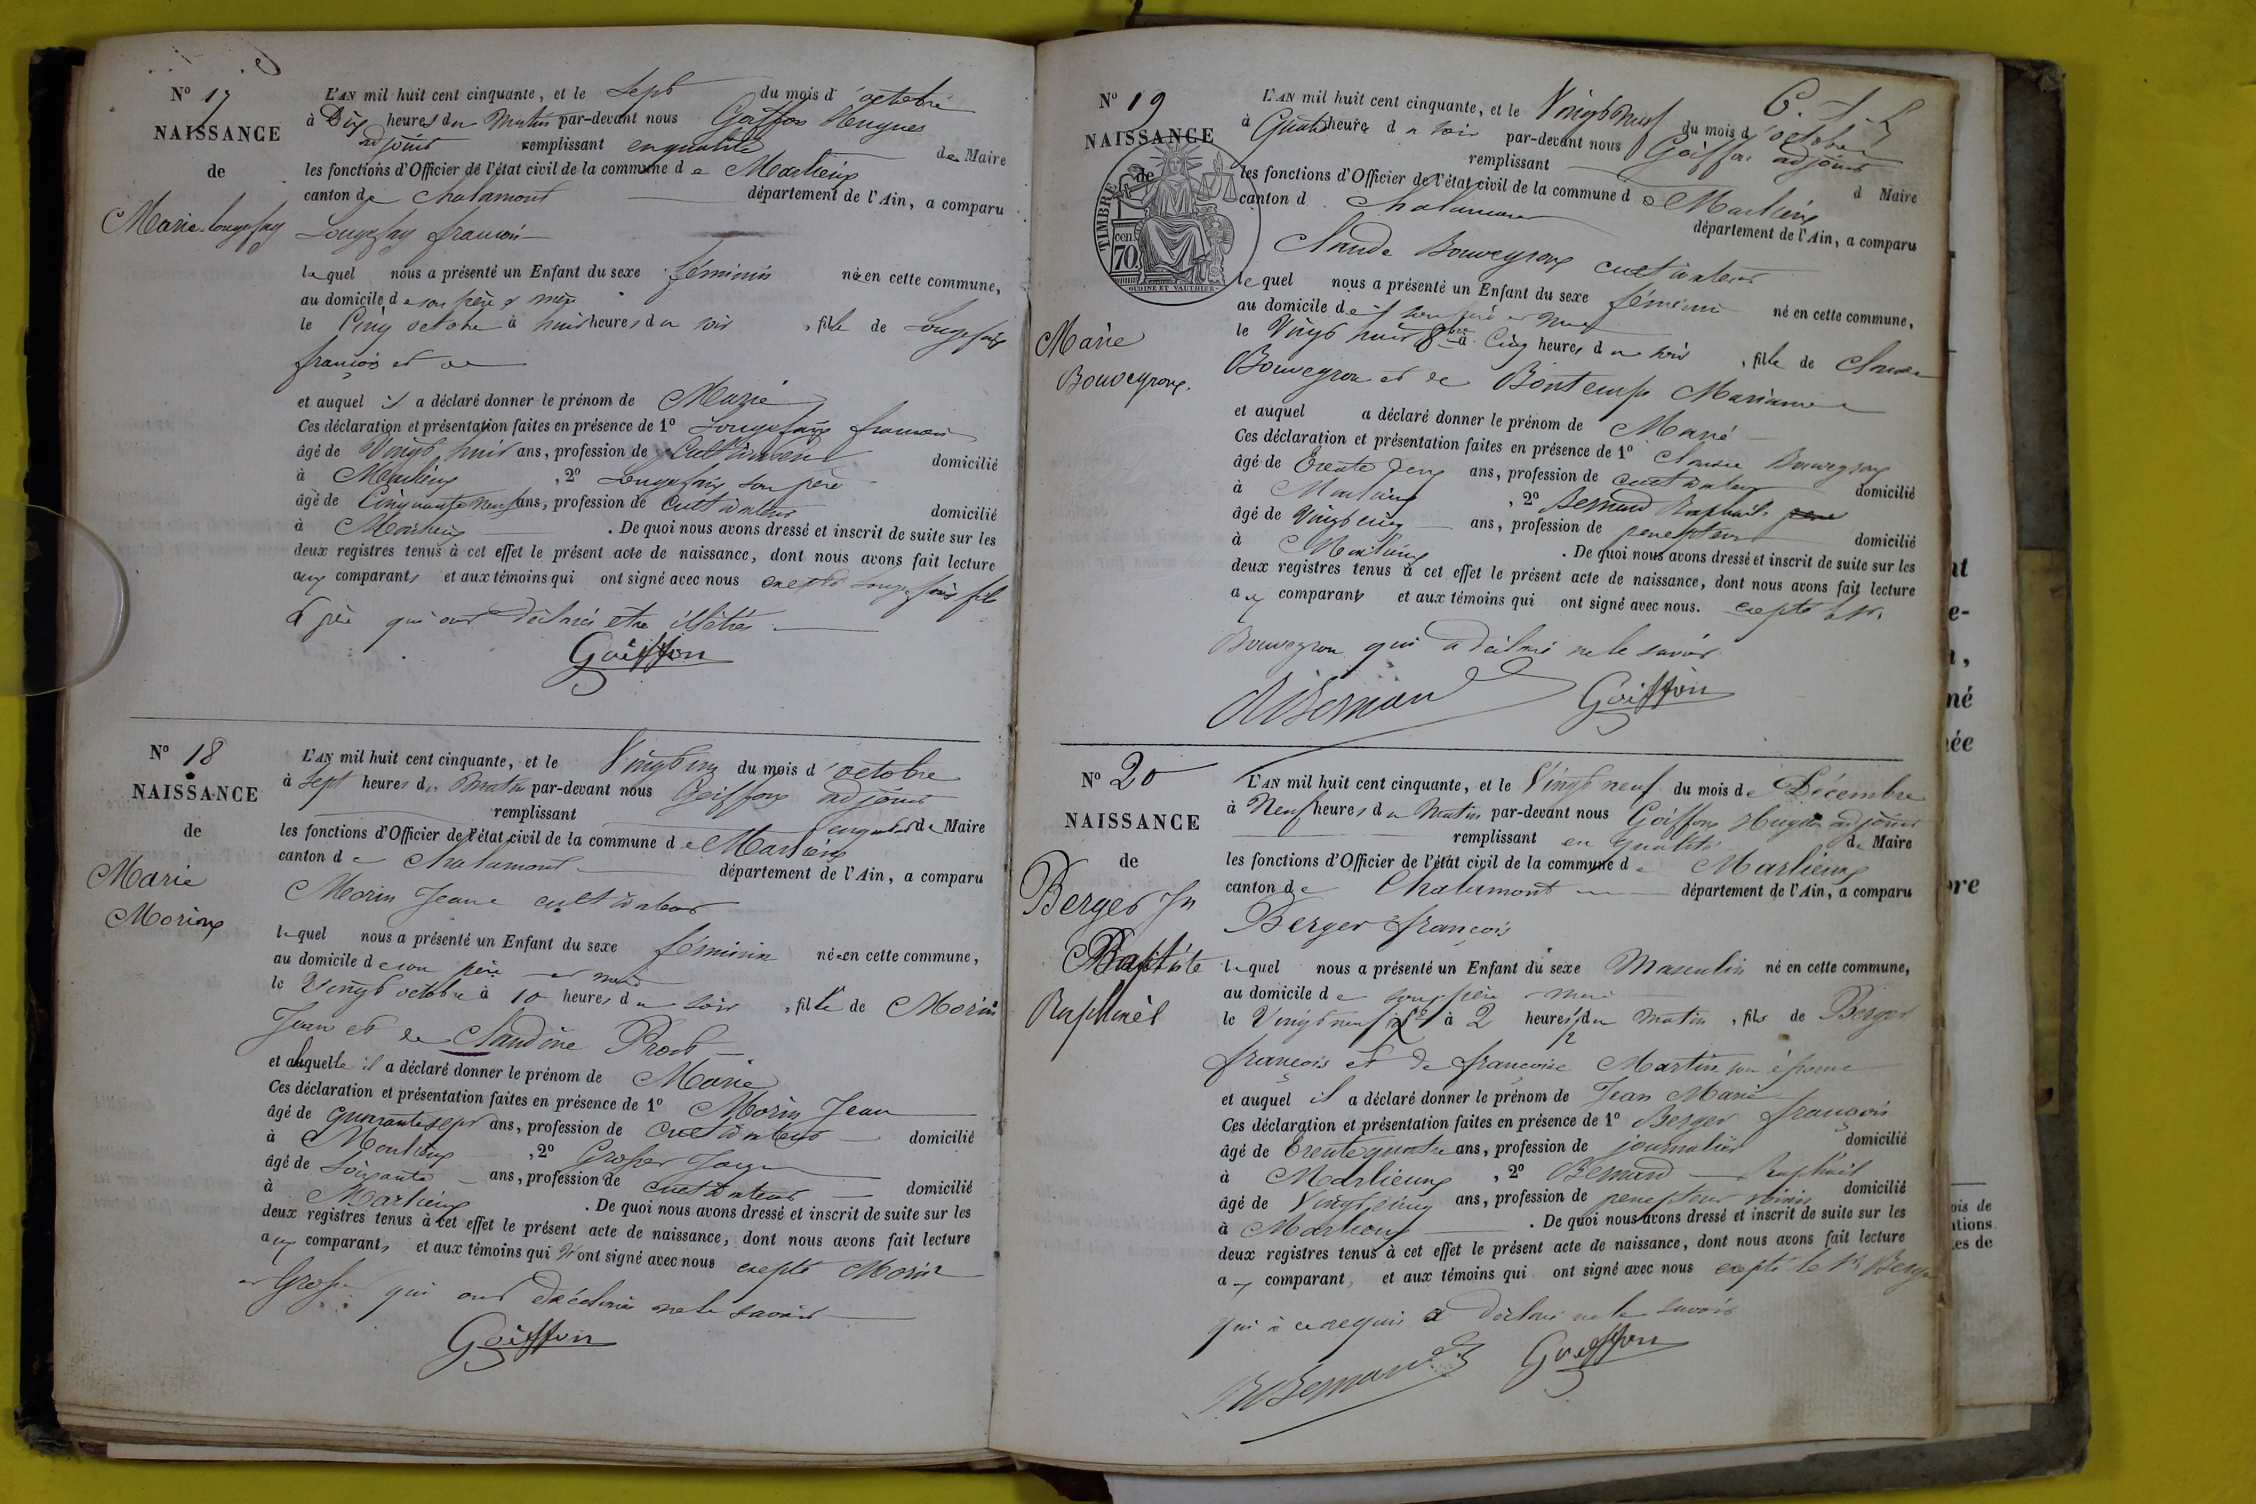 N° 17
NAISSANCE
de
Marie Longefay
L'AN mil huit cent cinquante, et le Sept du mois d'octobre
à Dix heures du Matin par-devant nous Goiffon Hugues
adjoint remplissant en qualité de Maire
les fonctions d'Officier de l'état civil de la commune de Marlieux
canton de Chalamont département de l'Ain, a comparu
Longefay francois
lequel nous a présenté un Enfant du sexe féminin née en cette commune,
au domicile de son père & mère
le Cinq octobre à huit heures du soir, fille de Longefay
françois et de
et auquel il a déclaré donner le prénom de Marie
Ces déclaration et présentation faites en présence de 1° Longefay francois
âgé de Vingt huit ans, profession de Cultivateur domicilié
à Marlieux, 2° Longefay son père
âgé de Cinquante neuf ans, profession de Cultivateur domicilié
à Marlieux. De quoi nous avons dressé et inscrit de suite sur les
deux registres tenus à cet effet le présent acte de naissance, dont nous avons fait lecture
aux comparants et aux témoins qui ont signé avec nous excepté Longefay fils
& père qui ont déclarés etre illétrés
Goiffon
N° 18
NAISSANCE
de
Marie
Morin
L'AN mil huit cent cinquante, et le Vingt un du mois d'octobre
à Sept heures du Matin par-devant nous Goiffon adjoint
remplissant en qualité de Maire
les fonctions d'Officier de l'état civil de la commune de Marlieux
canton de Chalamont département de l'Ain, a comparu
Morin Jean cultivateur
lequel nous a présenté un Enfant du sexe féminin née en cette commune,
au domicile de son père et mère
le Vingt octobre à 10 heures du soir, fille de Morin
Jean et de Claudine Prost
et à laquelle il a déclaré donner le prénom de Marie
Ces déclaration et présentation faites en présence de 1° Morin Jean
âgé de quarante sept ans, profession de Cultivateur domicilié
à Marlieux, 2°
âgé de Soixante ans, profession de cultivateur domicilié
à Marlieux. De quoi nous avons dressé et inscrit de suite sur les
deux registres tenus à cet effet le présent acte de naissance, dont nous avons fait lecture
aux comparants et aux témoins qui ont signé avec nous excepté Morin
et qui ont déclarés ne le savoir
Goiffon
N° 19
NAISSANCE
de
TIMBRE
70 cen
OUDINÉ ET VAUTHIER
Marie
Bouveyron
L'AN mil huit cent cinquante, et le Vingt neuf du mois d'octobre
à Quatre heure du soir par-devant nous Goiffon adjoint
remplissant d Maire
les fonctions d'Officier de l'état civil de la commune de Marlieux
canton d Chalamont département de l'Ain, a comparu
Claude Bouveyron cultivateur
lequel nous a présenté un Enfant du sexe féminin né en cette commune,
au domicile de son père et mère
le Vingt huit 8bre à Cinq heures du soir, fille de Claude
Bouveyron et de Bontemps Marianne
et auquel a déclaré donner le prénom de Marie
Ces déclaration et présentation faites en présence de 1° Claude Bouveyron
âgé de trente deux ans, profession de cultivateur domicilié
à Marlieux, 2° Bernard Raphaël
âgé de Vingt cinq ans, profession de percepteur domicilié
à Marlieux. De quoi nous avons dressé et inscrit de suite sur les
deux registres tenus à cet effet le présent acte de naissance, dont nous avons fait lecture
aux comparants et aux témoins qui ont signé avec nous. excepté le Sr.
Bouveyron qui a déclaré ne le savoir
RBernard Goiffon
N° 20
NAISSANCE
de
Berger Jn
Baptiste
Raphaël
L'AN mil huit cent cinquante, et le Vingt neuf du mois de Décembre
à Neuf heures du Matin par-devant nous Goiffon Hugues adjoint
remplissant en qualité de Maire
les fonctions d'Officier de l'état civil de la commune de Marlieux
canton de Chalamont département de l'Ain, a comparu
Berger françois
lequel nous a présenté un Enfant du sexe Masculin né en cette commune,
au domicile de son père & mère
le Vingt neuf à 2 heures 1/2 du matin, fils de Berger
françois et de francoise Martin son épouse
et auquel il a déclaré donner le prénom de Jean Marie
Ces déclaration et présentation faites en présence de 1° Berger françois
âgé de trente quatre ans, profession de journalier domicilié
à Marlieux, 2° Bernard Raphaël
âgé de Vingt cinq ans, profession de percepteur voisin domicilié
à Marlieux. De quoi nous avons dressé et inscrit de suite sur les
deux registres tenus à cet effet le présent acte de naissance, dont nous avons fait lecture
aux comparant, et aux témoins qui ont signé avec nous excepté le Sr Berger
qui à ce requis a déclaré ne le savoir
RBernard Goiffon